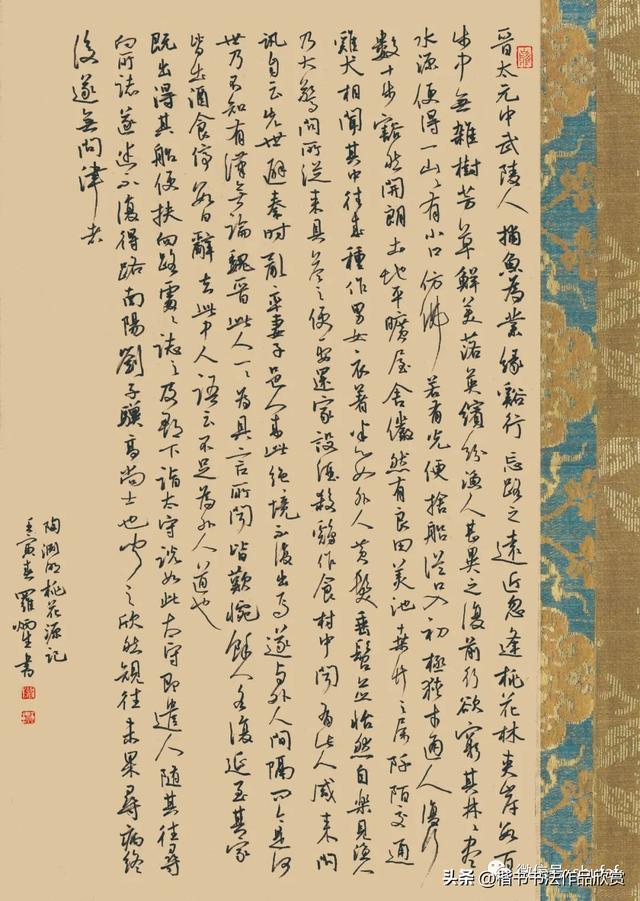 晉太元中武陵人捕魚為業緣谿行忘路之遠近忽逢桃花林夾岸數百
步中無雜樹芳草鮮美落英繽紛漁人甚異之復前行欲窮其林〻盡
水源便得一山〻有小口仿佛若有光便捨船從口入初極狹才通人復行
數十步豁然開朗土地平曠屋舍儼然有良田美池桑竹之屬阡陌交通
雞犬相聞其中往來種作男女衣著悉如外人黃髮垂髫並怡然自樂見漁人
乃大驚問所從來具答之便要還家設酒殺鷄作食村中聞有此人咸來問
訊自云先世避秦時亂率妻子邑人來此絕境不復出焉遂与外人間隔問今是何
世乃不知有漢無論魏晉此人一一為具言所聞皆歎惋餘人各復延至其家
皆出酒食停數日辭去此中人語云不足為外人道也
既出得其船便扶向路處〻誌之及郡下詣太守說如此太守即遣人隨其往尋
向所誌遂迷不復得路南陽劉子驥高尚士也聞之欣然規往未果尋病終
後遂無問津者
陶淵明桃花源記
壬寅春羅書
微信号
头条@楷书书法作品欣赏